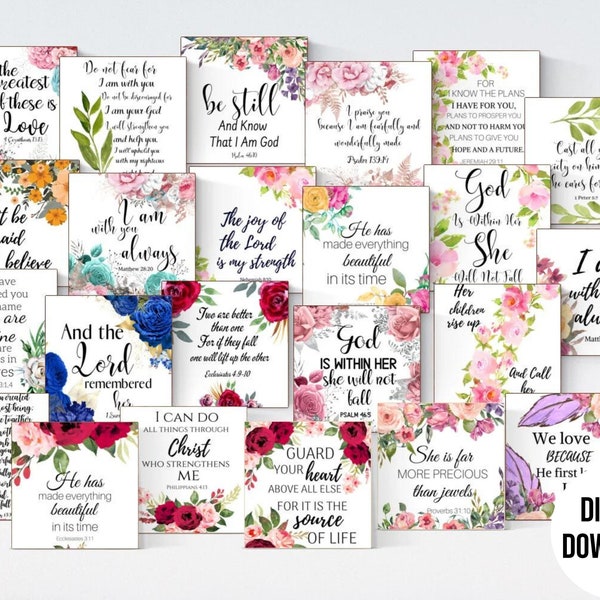 the
greatest
of these is
Love
1 Corinthians 13:13
Do not fear for
I am with you
Do not be discouraged for
I am your God
I will strengthen you
and help you
I will uphold you
with my righteous
be still
And Know
That I Am God
Psalm 46:10
I praise you
because I am fearfully and
wonderfully made
Psalm 139:14
FOR
I KNOW THE PLANS
I HAVE FOR YOU,
PLANS TO PROSPER YOU
AND NOT TO HARM YOU
PLANS TO GIVE YOU
HOPE AND A FUTURE.
JEREMIAH 29:11
Cast all y
on him
she cares fo
1 Peter 5:7
believe
I am
with you
always
Matthew 28:20
The joy of
the Lord
is my strength
He has
made everything
beautiful
in its time
God
Is Within Her
She
Will Not Fall
I a
with
alw
Matt
have
ved you
name
are
ine
And the
Lord
remembered
her
Two are better
than one
For if they fall
one will lift up the other
Ecclesiastes 4:9-10
God
IS WITHIN HER
she will not
fall
PSALM 46:5
Her
children
rise up
And Call
her
He has
made everything
beautiful
in its time
Ecclesiastes 3:11
I CAN DO
ALL THINGS THROUGH
Christ
WHO STRENGTHENS
ME
PHILIPPIANS 4:13
GUARD
YOUR heart
ABOVE ALL ELSE
FOR IT IS THE
source
OF LIFE
She is far
MORE PRECIOUS
than jewels
Proverbs 31:10
We love
BECAUSE
He first l
DI
DOW